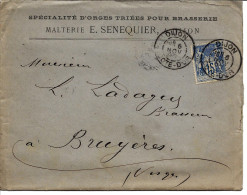 SPÉCIALITÉ D'ORGES TRIÉES POUR BRASSERIE
MALTERIE E. SENEQUIER, DIJON
DIJON
DIJON
Monsieur
L. Ladagus
Brasseur
à Bruyères
(Vosges)